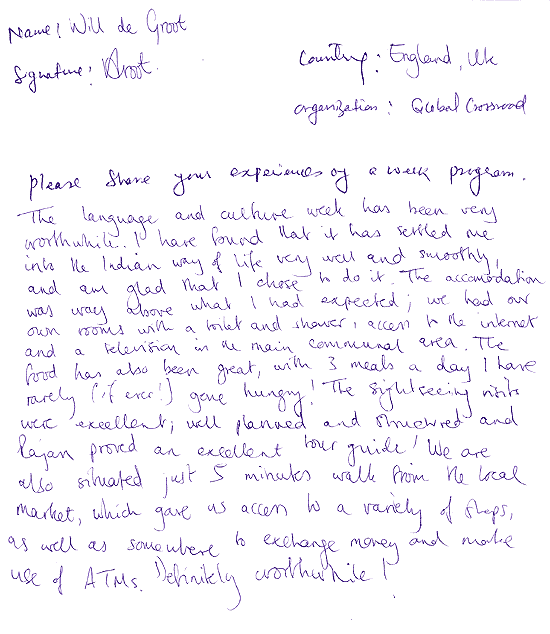 Name: Will de Groot
Signature: WGroot.
Country: England, Uk
organization: Global Crossroad
please share your experiences of a week program.
The language and culture week has been very
worthwhile. I have found that it has settled me
into the Indian way of life very well and smoothly,
and am glad that I chose to do it. The accomodation
was way above what I had expected; we had our
own rooms with a toilet and shower, access to the internet
and a television in the main communal area. The
food has also been great, with 3 meals a day I have
rarely (if ever!) gone hungry! The sightseeing visits
were excellent; well planned and structured and
Rajan proved an excellent tour guide! We are
also situated just 5 minutes walk from the local
market, which gave us access to a variety of shops,
as well as somewhere to exchange money and make
use of ATMs. Definitely worthwhile!